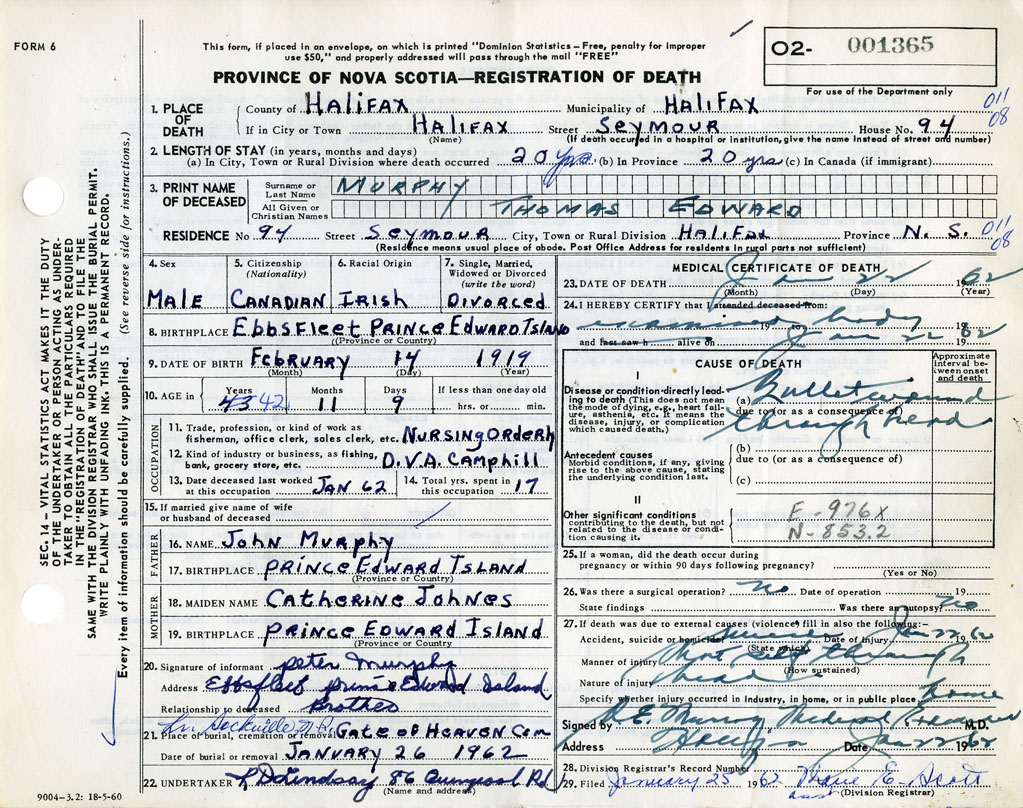 FORM 6
This form, if placed in an envelope, on which is printed "Dominion Statistics – Free, penalty for improper
use $50," and properly addressed will pass through the mail "FREE"
PROVINCE OF NOVA SCOTIA—REGISTRATION OF DEATH
O2- 001365
For use of the Department only
1. PLACE OF DEATH { County of HALIFAX Municipality of HALIFAX 011
If in City or Town HALIFAX Street SEYMOUR House No. 94 08
(Name) (If death occurred in a hospital or institution, give the name instead of street and number)
2. LENGTH OF STAY (in years, months and days)
(a) In City, Town or Rural Division where death occurred 20 yrs (b) In Province 20 yrs (c) In Canada (if immigrant)
3. PRINT NAME OF DECEASED
Surname or Last Name MURPHY
All Given or Christian Names THOMAS EDWARD
RESIDENCE No 94 Street SEYMOUR City, Town or Rural Division HALIFAX Province N. S. 011
08
(Residence means usual place of abode. Post Office Address for residents in rural parts not sufficient)
4. Sex 5. Citizenship (Nationality) 6. Racial Origin 7. Single, Married, Widowed or Divorced (write the word)
MALE CANADIAN IRISH DIVORCED
8. BIRTHPLACE EBBSFLEET PRINCE EDWARD ISLAND
(Province or Country)
9. DATE OF BIRTH FEBRUARY 14 1919
(Month) (Day) (Year)
10. AGE in { Years Months Days If less than one day old
43 42 11 9 hrs. or min.
OCCUPATION
11. Trade, profession, or kind of work as
fisherman, office clerk, sales clerk, etc. NURSING ORDERLY
12. Kind of industry or business, as fishing,
bank, grocery store, etc. D.V.A. CAMPHILL
13. Date deceased last worked at this occupation JAN 62 14. Total yrs. spent in this occupation 17
15. If married give name of wife
or husband of deceased
FATHER
16. NAME JOHN MURPHY
17. BIRTHPLACE PRINCE EDWARD ISLAND
(Province or Country)
MOTHER
18. MAIDEN NAME CATHERINE JOHNES
19. BIRTHPLACE PRINCE EDWARD ISLAND
(Province or Country)
20. Signature of informant Peter Murphy
Address Ebbsfleet Prince Edward Island
Relationship to deceased Brother
21. Place of burial, cremation or removal GATE OF HEAVEN CEM
Date of burial or removal JANUARY 26 1962
22. UNDERTAKER 86 Rd
(Name and address)
9004–3.2: 18-5-60
MEDICAL CERTIFICATE OF DEATH
23. DATE OF DEATH Jan 22 1962
(Month) (Day) (Year)
24. I HEREBY CERTIFY that I attended deceased from:
examined body 19 to 19
and last saw h alive on Jan 22 1962
CAUSE OF DEATH
Approximate interval between onset and death
I
Disease or condition directly leading to death (This does not mean the mode of dying, e.g., heart failure, asthenia, etc. It means the disease, injury, or complication which caused death.)
(a) Bullet wound
due to (or as a consequence of)
through head
Antecedent causes
Morbid conditions, if any, giving rise to the above cause, stating the underlying condition last.
(b)
due to (or as a consequence of)
(c)
II
Other significant conditions
contributing to the death, but not related to the disease or condition causing it.
E-976X
N-853.2
25. If a woman, did the death occur during
pregnancy or within 90 days following pregnancy?
(Yes or No)
26. Was there a surgical operation? No Date of operation 19
State findings Was there an autopsy? No
27. If death was due to external causes (violence) fill in also the following:–
Accident, suicide or homicide Suicide Date of injury Jan 22 1962
(State which)
Manner of injury Shot self through
(How sustained)
Nature of injury head
Specify whether injury occurred in industry, in home, or in public place home
Signed by Murray Medical Examiner M.D.
Address Date Jan 22 1962
28. Division Registrar's Record Number
29. Filed January 25 1962 E. Scott
(Division Registrar)
SEC. 14 – VITAL STATISTICS ACT MAKES IT THE DUTY
OF THE UNDERTAKER OR PERSON ACTING AS UNDER-
TAKER TO OBTAIN ALL THE PARTICULARS REQUIRED
IN THE "REGISTRATION OF DEATH" AND TO FILE THE
SAME WITH THE DIVISION REGISTRAR WHO SHALL ISSUE THE BURIAL PERMIT.
WRITE PLAINLY WITH UNFADING INK. THIS IS A PERMANENT RECORD.
Every item of information should be carefully supplied. (See reverse side for instructions.)